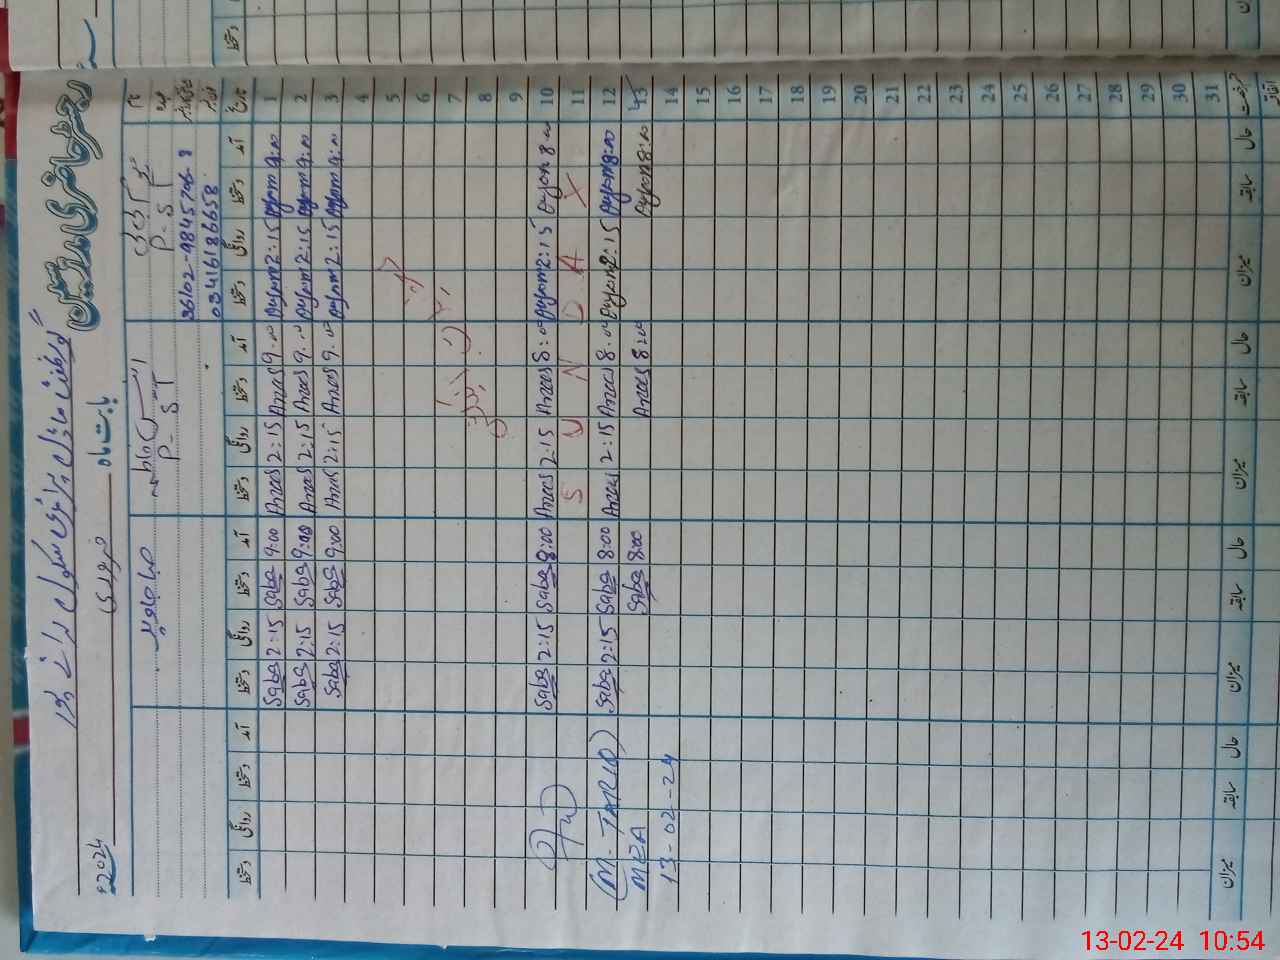 رجسٹر حاضری مدرسین
گورنمنٹ ماڈل پرائمری سکول
بابت ماہ فروری 2024ء
نام
عہدہ
P-S T
P- S T
صبا جاوید
36102-9845706-8
03416186658
تاریخ آمد دستخط روانگی دستخط آمد دستخط روانگی دستخط آمد دستخط روانگی دستخط آمد دستخط روانگی دستخط
1 9:00 2:15 Anees 9:00 Anees 2:15 Saba 9:00 Saba 2:15
2 9:00 2:15 Anees 9:00 Anees 2:15 Saba 9:00 Saba 2:15
3 9:00 2:15 Anees 9:00 Anees 2:15 Saba 9:00 Saba 2:15
4
5
6
7
8
9
10 8:00 2:15 Anees 8:00 Anees 2:15 Saba 8:00 Saba 2:15
11 S U N D A Y
12 8:00 2:15 Anees 8:00 Anees 2:15 Saba 8:00 Saba 2:15
13 8:00 Anees 8:00 Saba 8:00
14
15
16
17
18
19
20
21
22
23
24
25
26
27
28
29
30
31
رخصت حال سابقہ میزان حال سابقہ میزان حال سابقہ میزان حال سابقہ میزان
اتفاقیہ
(M. TARIQ)
MEA
13-02-24
13-02-24 10:54